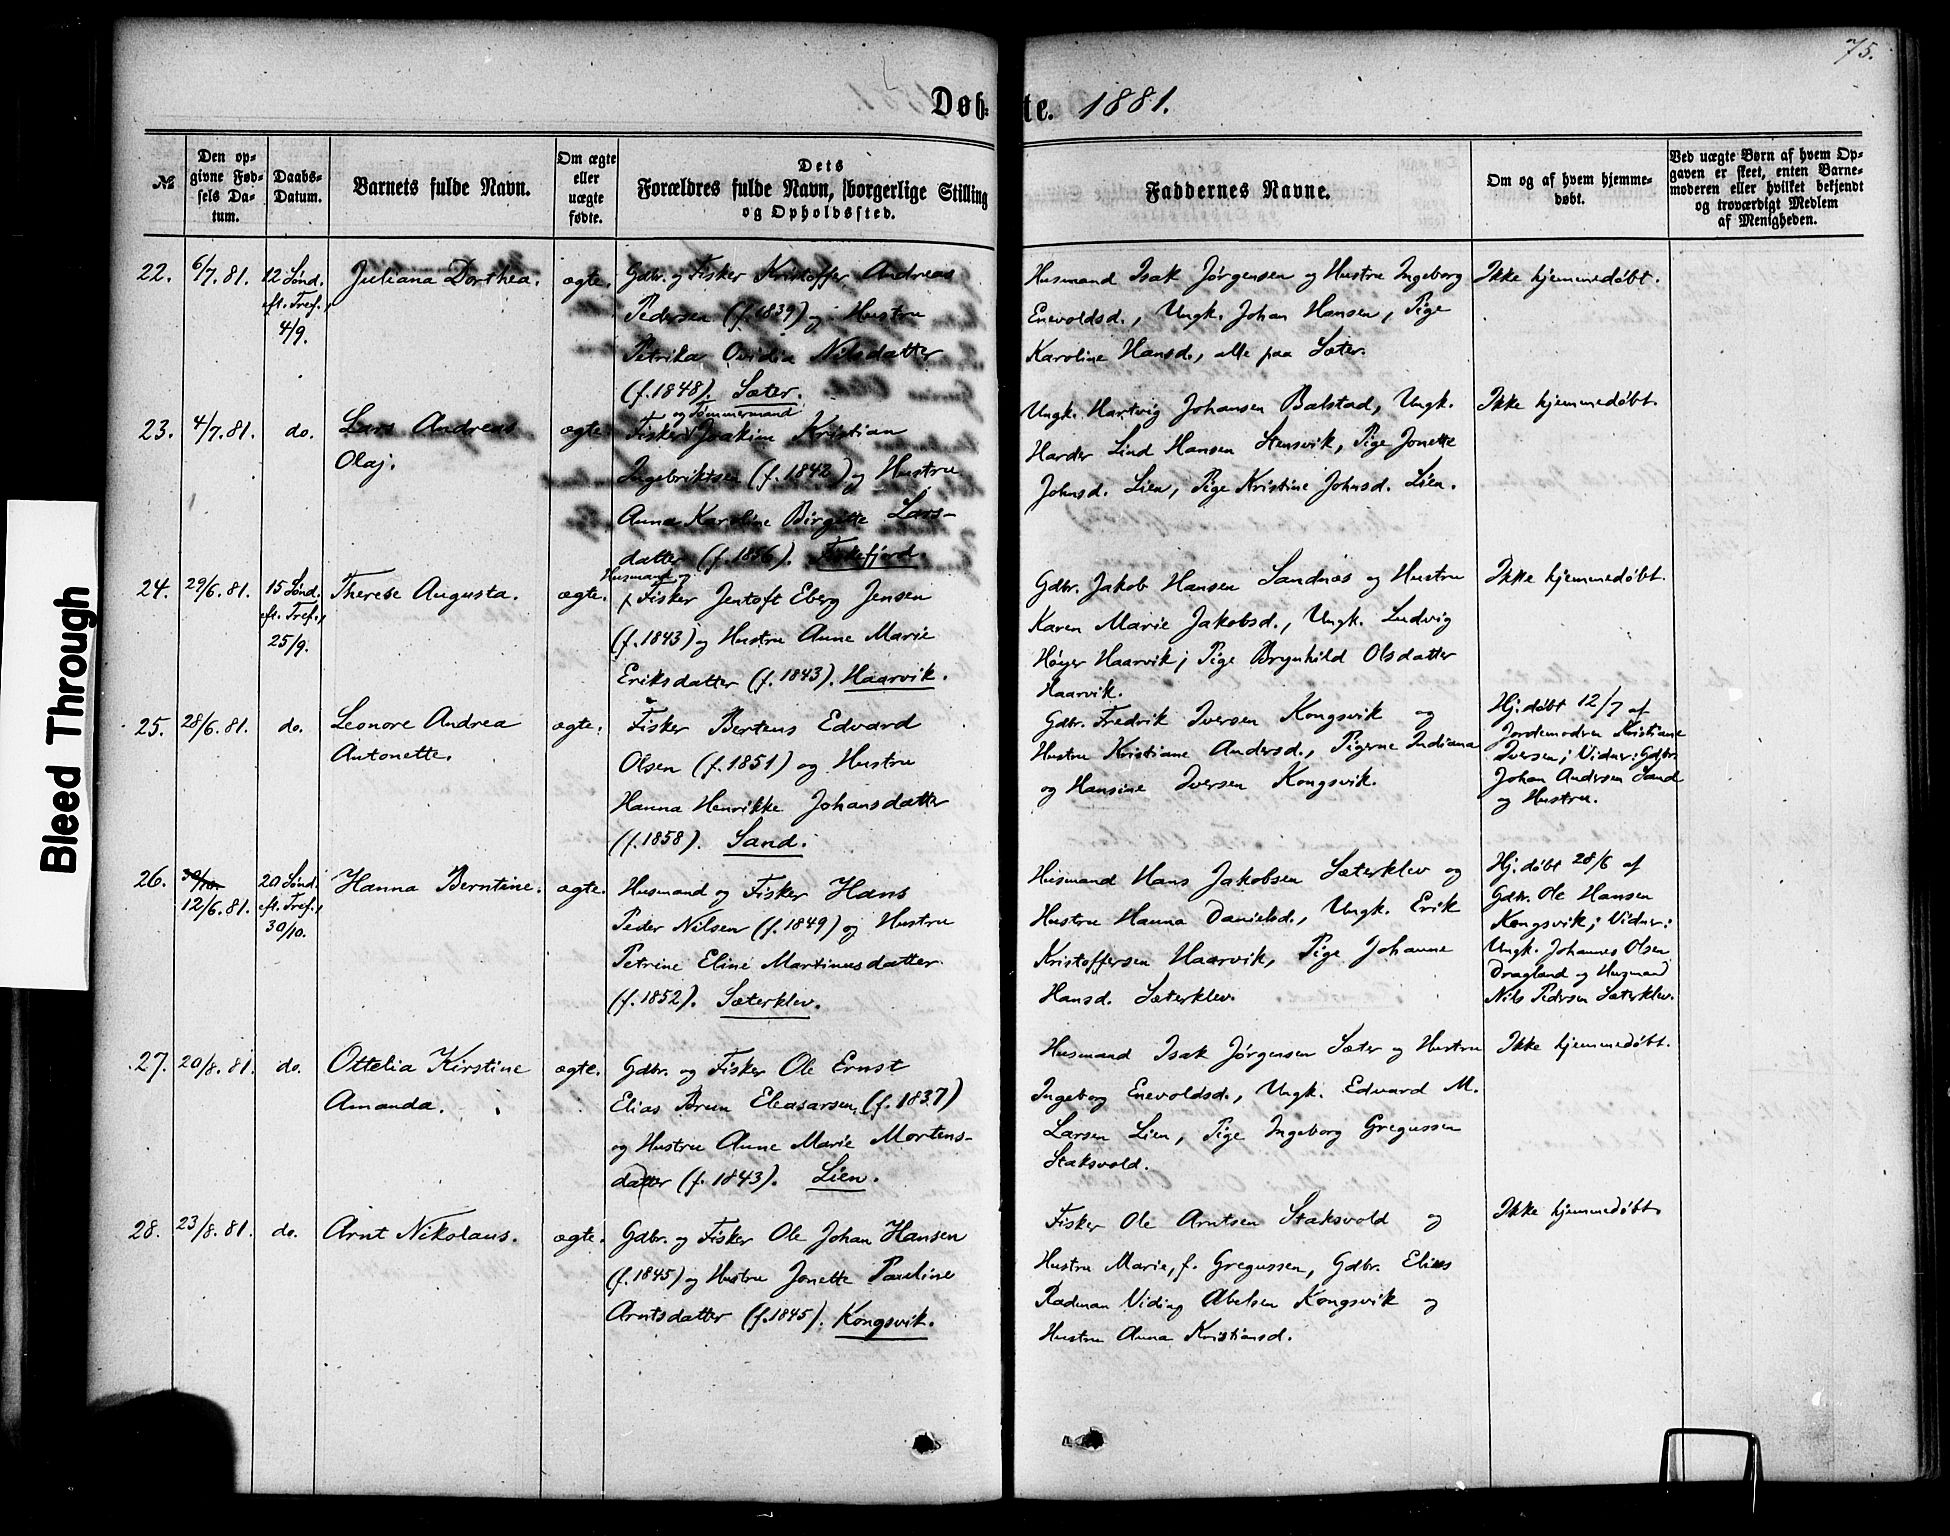 75.
Døbte. 1881.
№
Den opgivne Fødsels Datum.
Daabs-Datum.
Barnets fulde Navn.
Om ægte eller uægte fødte.
Dets Forældres fulde Navn, borgerlige Stilling og Opholdssted.
Faddernes Navne.
Om og af hvem hjemmedøbt.
Ved uægte Børn af hvem Opgaven er skeet, enten Barnemoderen eller hvilket bekjendt og troværdigt Medlem af Menigheden.
22. 6/7. 81. 12 Sønd. eft. Tref., 4/9. Juliana Dorthea. ægte.
Gdbr. og Fisker Kristoffer Andreas
Pedersen (f. 1839) og Hustru
Petrika Ovidia Nilsdatter
(f. 1848). Sæter.
Husmand Isak Jørgensen og Hustru Ingeborg
Enevoldsd., Ungk. Johan Hansen, Pige
Karoline Hansd., alle paa Sæter.
Ikke hjemmedøbt.
23. 4/7. 81. do. Lars Andreas
Olaj. ægte
og Tømmermand
Fisker Joakim Kristian
Ingebriktsen (f. 1842) og Hustru
Anna Karoline Birgitte Lars-
datter (f. 1856). Fiskefjord.
Ungk. Hartvig Johansen Balstad, Ungk.
Harder Lind Hansen Stensvik, Pige Jonette
Johnsd. Lien, Pige Kristine Johnsd. Lien.
Ikke hjemmedøbt.
24. 29/6. 81. 15 Sønd. eft. Tref., 25/9. Therese Augusta. ægte.
Husmand og
Fisker Jentoft Eberg Jensen
(f. 1843) og Hustru Anne Marie
Eriksdatter (f. 1843). Haarvik.
Gdbr. Jakob Hansen Sandnæs og Hustru
Karen Marie Jakobsd., Ungk. Ludvig
Høyer Haarvik; Pige Brynhild Olsdatter
Haarvik.
Ikke hjemmedøbt.
25. 28/6. 81. do. Leonore Andrea
Antonette. ægte.
Fisker Bertens Edvard
Olsen (f. 1851) og Hustru
Hanna Henrikke Johansdatter
(f. 1858). Sand.
Gdbr. Fredrik Iversen Kongsvik og
Hustru Kristiane Andersd., Pigerne Indiana
og Hansine Iversen Kongsvik.
Hj. døbt 12/7 af
Jordemodren Kristiane
Iversen; Vidner: Gdbr.
Johan Andersen Sand
og Hustru.
26. 30/10. 12/6. 81. 20 Sønd. eft. Tref., 30/10. Hanna Berntine. ægte.
Husmand og Fisker Hans
Peder Nilsen (f. 1849) og Hustru
Petrine Eline Martinusdatter
(f. 1852). Sæterklev.
Husmand Hans Jakobsen Sæterklev og
Hustru Hanna Danielsd., Ungk. Erik
Kristoffersen Haarvik, Pige Johanne
Hansd. Sæterklev.
Hj. døbt 28/6 af
Gdbr. Ole Hansen
Kongsvik; Vidner:
Ungk. Johannes Olsen
Dragland og Husmand
Nils Pedersen Sæterklev.
27. 20/8. 81. do. Ottelia Kirstine
Amanda. ægte.
Gdbr. og Fisker Ole Ernst
Elias Brun Eleasarsen (f. 1837)
og Hustru Anne Marie Mortens-
datter (f. 1843). Lien.
Husmand Isak Jørgensen Sæter og Hustru
Ingeborg Enevoldsd., Ungk. Edvard M.
Larsen Lien, Pige Ingeborg Gregussen
Staksvold.
Ikke hjemmedøbt.
28. 23/8. 81. do. Arnt Nikolaus. ægte.
Gdbr. og Fisker Ole Johan Hansen
(f. 1845) og Hustru Jonette Pauline
Arntsdatter (f. 1845). Kongsvik.
Fisker Ole Arntsen Staksvold og
Hustru Marie, f. Gregussen, Gdbr. Elias
Radman Viding Abelsen Kongsvik og
Hustru Anna Kristiansd.
Ikke hjemmedøbt.
Bleed Through